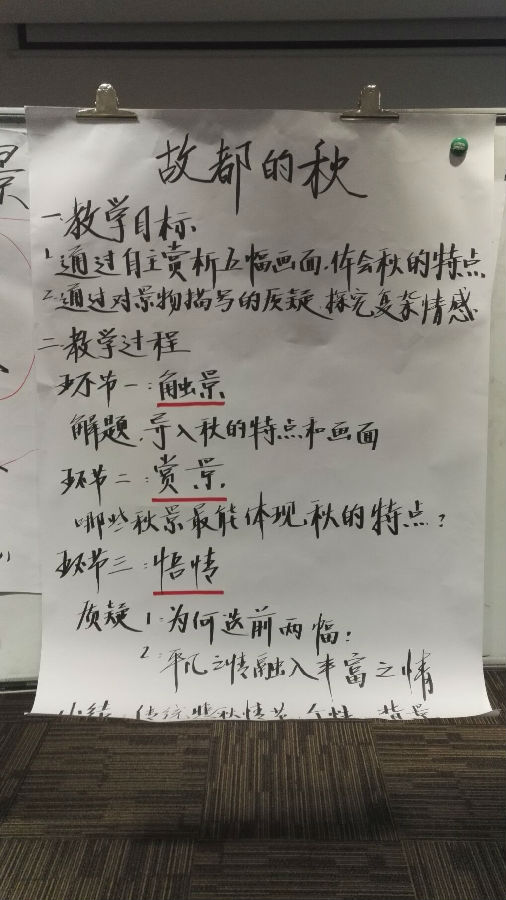 故都的秋
一 教学目标
1. 通过自主赏析五幅画面、体会秋的特点
2. 通过对景物描写的质疑、探究复杂情感
二 教学过程
环节一：触景
解题、导入秋的特点和画面
环节二：赏景
哪些秋景最能体现秋的特点？
环节三：悟情
质疑 1. 为何选前两幅？
2. 平凡之情融入丰富之情
小结 传统悲秋情
景